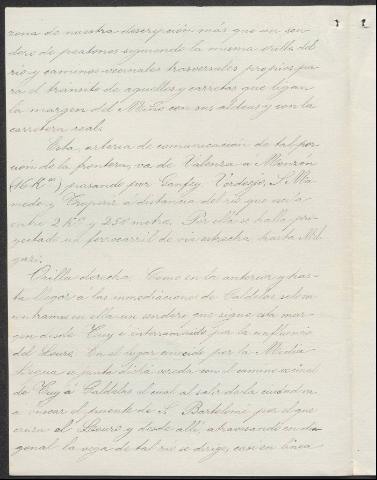 zona de nuestra descripción más que un sen-
dero de peatones siguiendo la misma orilla del
rio y caminos vecinales trasversales propios pa-
ra el transito de aguilles y carretas que ligan
la margen del Miño con sus aldeas y con la
carretera real.
Esta, arteria de comunicación de tal por-
ción de la frontera, va de Valenza a Monzon
(16 K.m), pasando por Ganfey, Verdoejo, S. Ma-
mede, y Troporiz á distancia del río que varía
entre 2 K.s y 250 metros. Por ella se halla pro-
yectado un ferrocarril de via estrecha hasta Mel-
gazo.
Orilla derecha. Como en la anterior y has-
ta llegar á las inmediaciones de Caldelas solo en-
contramos en ella un sendero que sigue esta mar-
gen desde Tuy é interrumpido por la confluencia
del Louro. En el lugar conocido por la Media
Arana se junta dicha vereda con el camino vecinal
de Tuy á Caldelas el cual al salir de la ciudad va
a buscar el puente de S. Bartolomé por el que
cruza el Louro y desde allí, atravesando en dia-
gonal la vega de tal rio se dirige, casi en línea